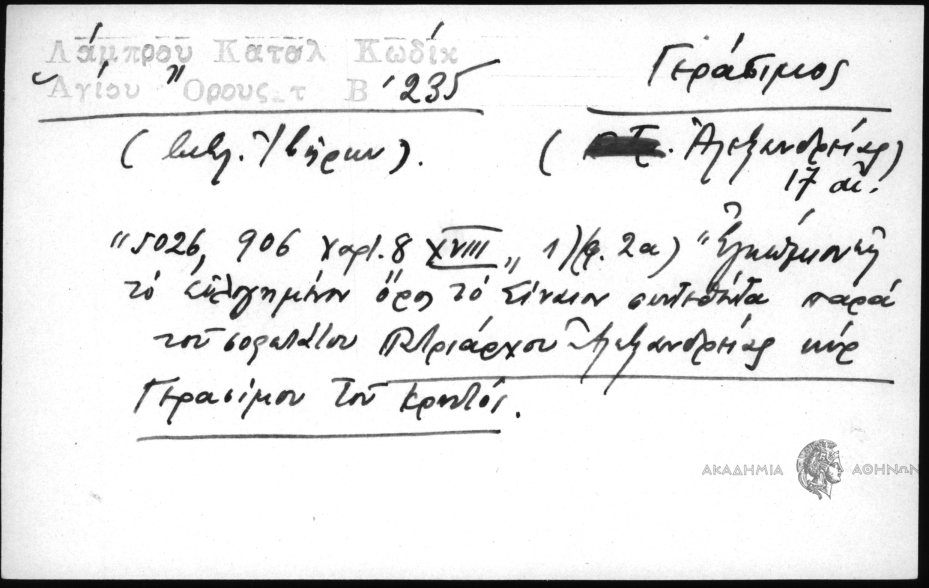 Λάμπρου Κατάλ Κωδίκ
Αγίου Όρους τ Β' 235
Γεράσιμος
(Βιβλ. Ἰβήρων).
(Ἀλεξανδρείας)
17 αἰ.
"5026, 906 χαρτ. 8 XVIII„ 1) (φ. 2α) "Ἐγκώμιον εἰς
τό εὐλογημένον ὄρος τό Σίναιον συντεθέντα παρά
τοῦ σοφωτάτου Πατριάρχου Ἀλεξανδρείας κύρ
Γερασίμου τοῦ Κρητός.
ΑΚΑΔΗΜΙΑ ΑΘΗΝΩΝ